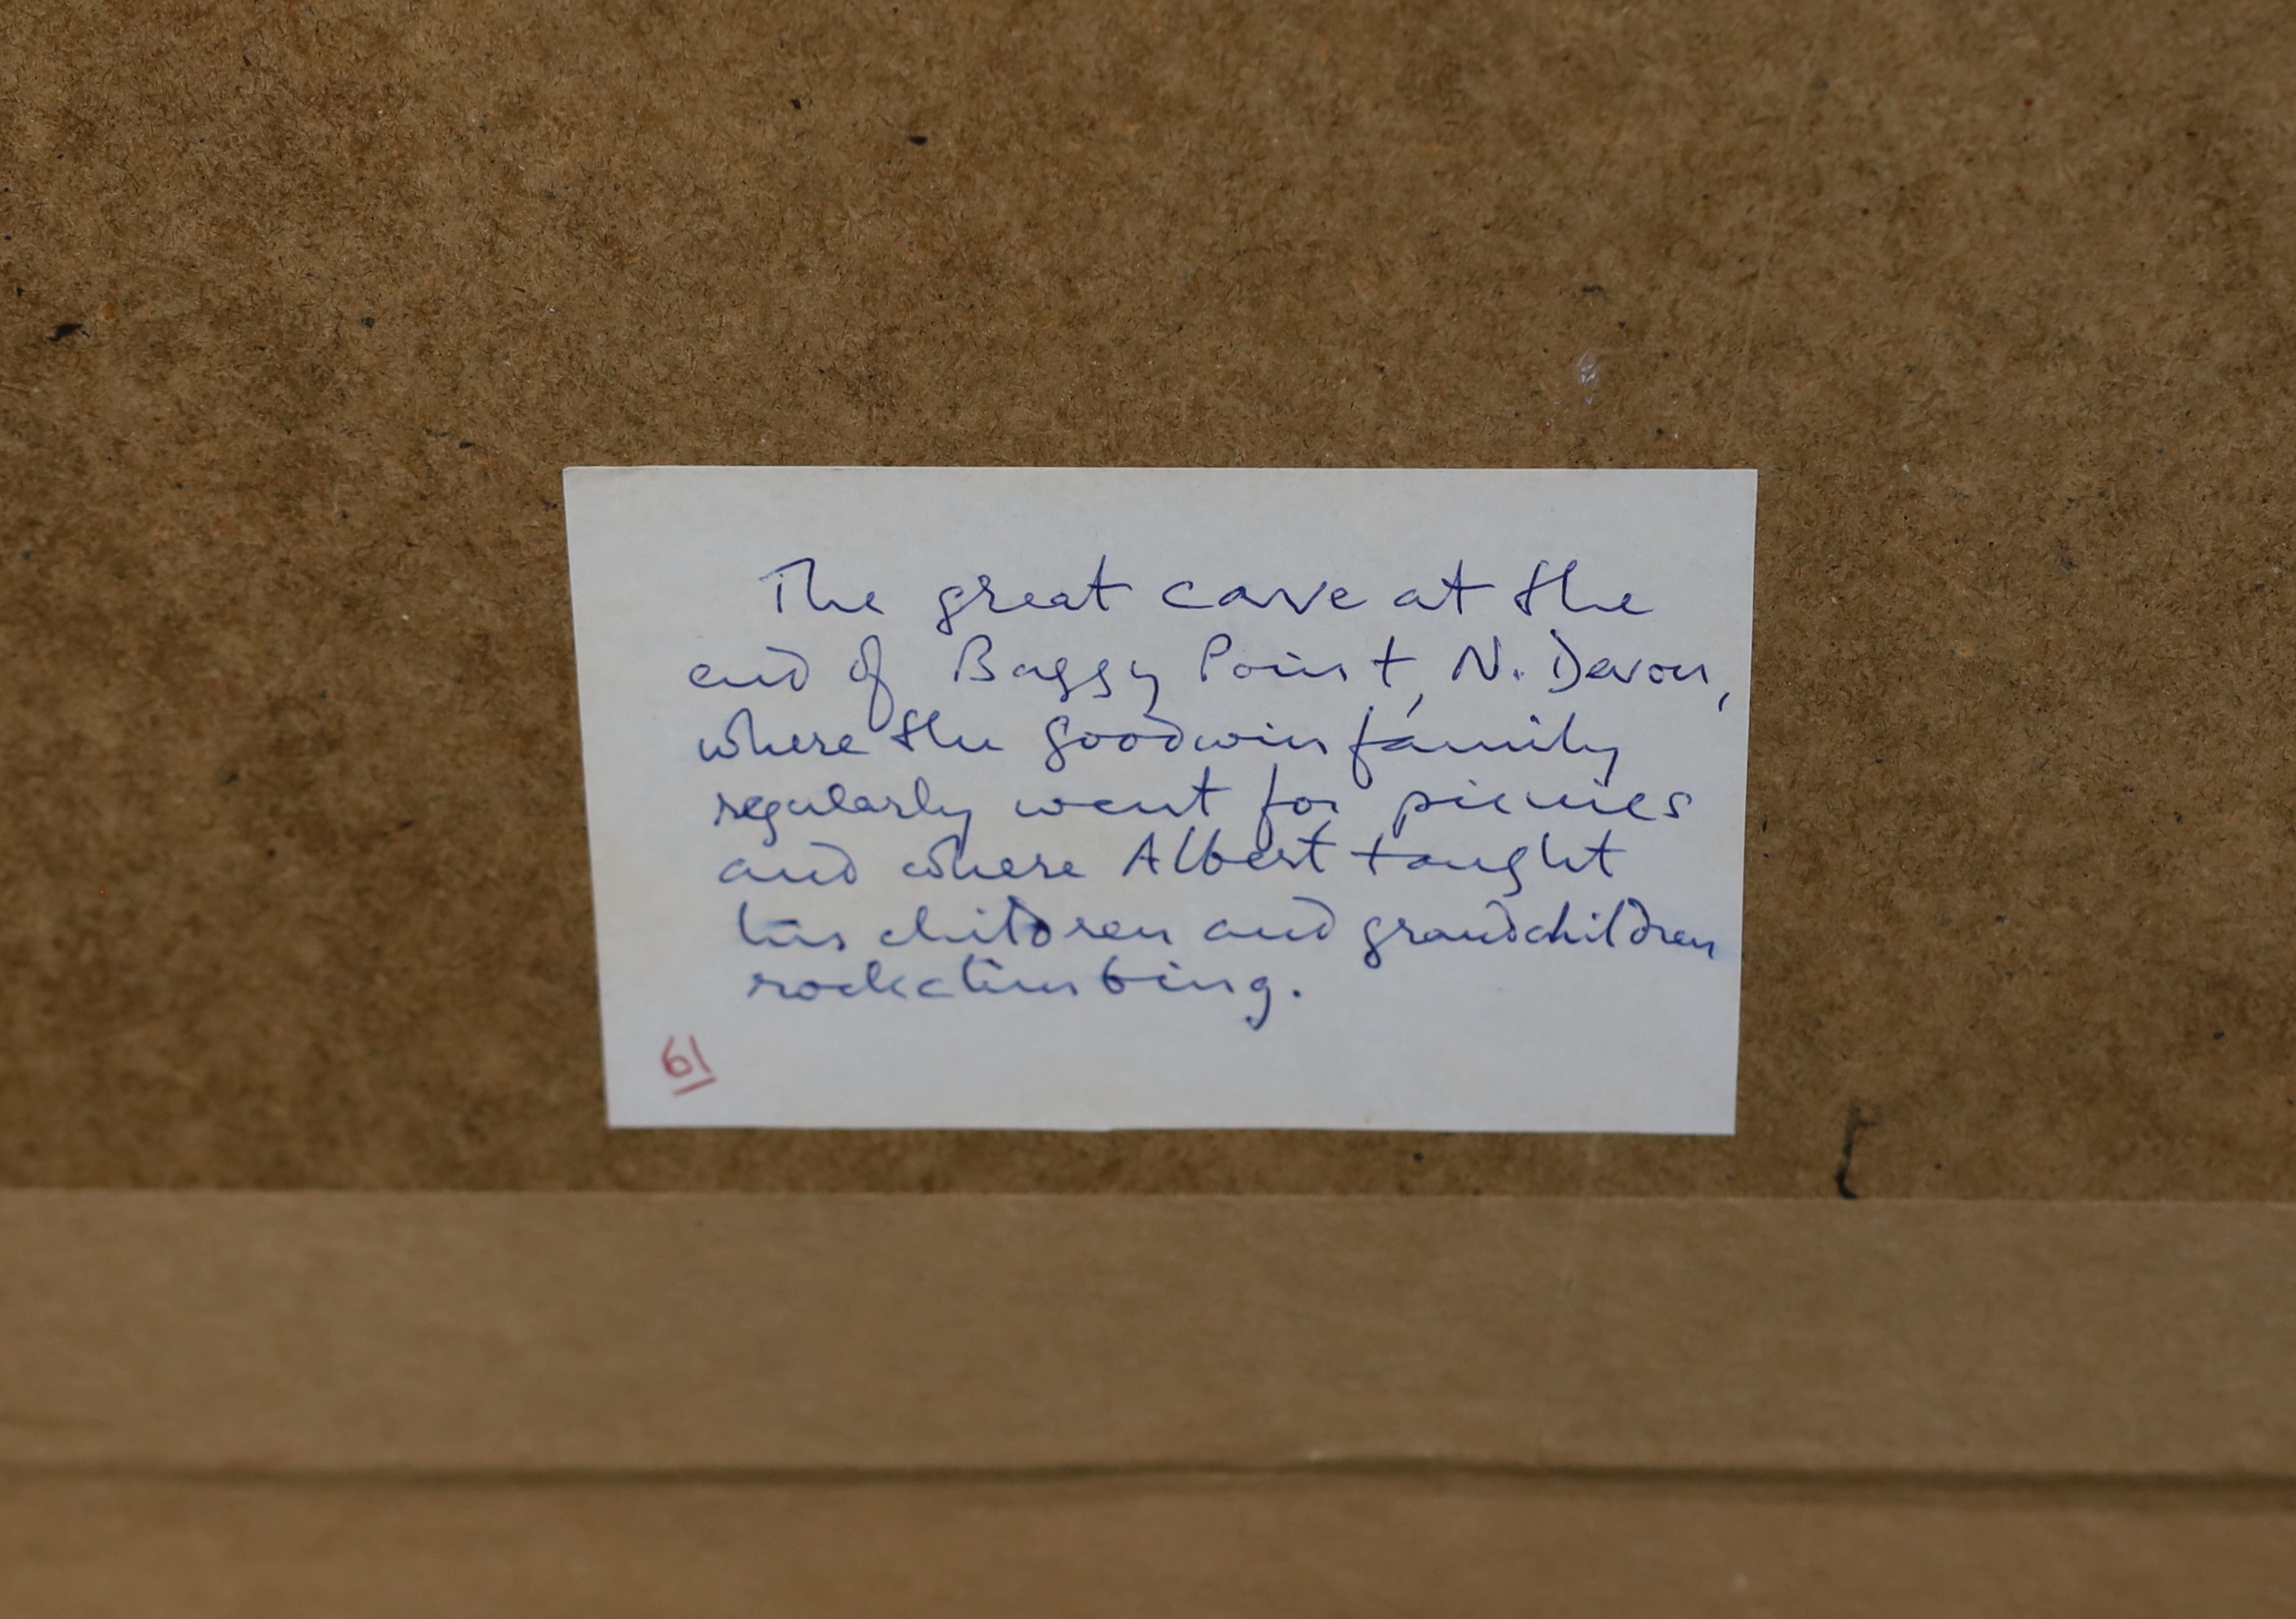 The great cave at the
end of Baggy Point, N. Devon,
where the Goodwin family
regularly went for picnics
and where Albert taught
his children and grandchildren
rockclimbing.
61